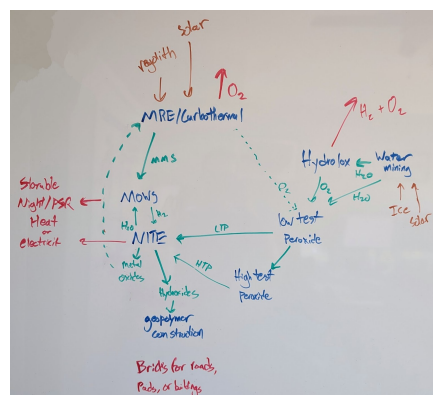 solar
regolith
O2
MRE/Carbothermal
H2 + O2
MMS
Hydrolox
Water
mining
H2O
O2
O2
H2O
Storable
Night/PSR
Heat
or
electricit
MOWS
H2O
H2
Ice
solar
low test
Peroxide
LTP
NITE
metal
oxides
HTP
High test
peroxide
Hydroxides
geopolymer
construction
Bricks for roads,
Pads, or buildings